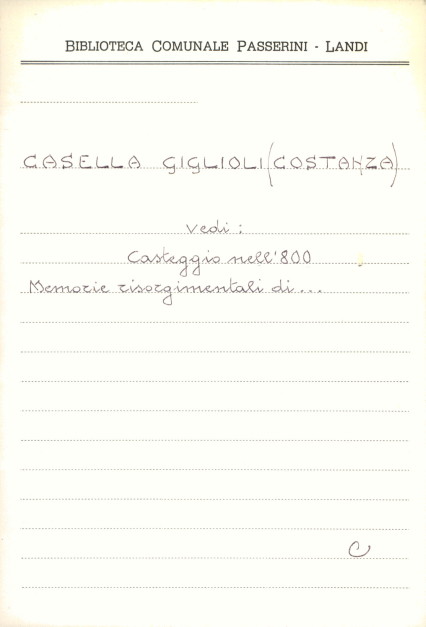 BIBLIOTECA COMUNALE PASSERINI - LANDI
CASELLA GIGLIOLI (COSTANZA)
vedi :
Casteggio nell'800
Memorie risorgimentali di ...
C